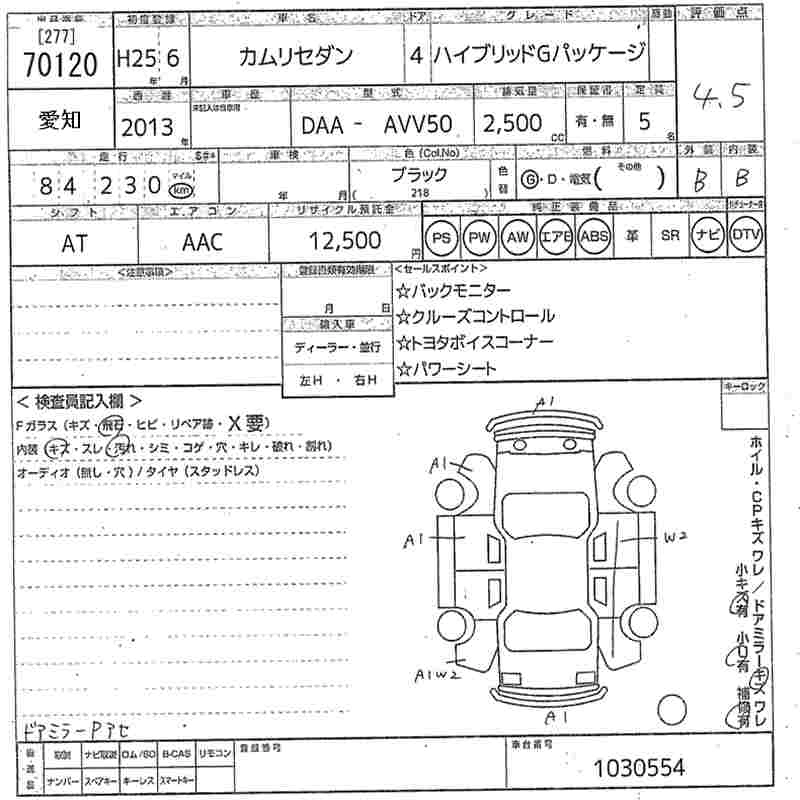 初度登録 車名 ドア グレード 評価点
[277]
70120 H25 6 カムリセダン 4 ハイブリッドGパッケージ 4.5
年 月
愛知 西暦 車歴 型式 排気量 保証書 定員
未記入は自家用
2013 年 DAA - AVV50 2,500 CC 有・無 5 名
走行 車検 色 (Col.No) 色替 燃料 外装 内装
84230 マイル km 年 月 ブラック ( 218 ) G・D・電気 ( その他 ) B B
シフト エアコン リサイクル預託金 純正装備品
AT AAC 12,500 円 PS PW AW エアB ABS 革 SR ナビ DTV
<注意事項> 登録書類有効期限 <セールスポイント>
月 日 ☆バックモニター
輸入車 ☆クルーズコントロール
ディーラー・並行 ☆トヨタボイスコーナー
左H ・ 右H ☆パワーシート
キーロック
< 検査員記入欄 >
Fガラス (キズ・飛石・ヒビ・リペア跡・X要)
内装 (キズ・スレ・汚れ・シミ・コゲ・穴・キレ・破れ・割れ)
オーディオ (無し・穴) / タイヤ (スタッドレス)
A1
A1
A1 W2
A1W2
A1
ホイル・CPキズワレ/ドアミラーキズワレ
小キズ有 小凹有 補修有
ドアミラーPアセ
取説 ナビ取説 ロム/SD B-CAS リモコン 登録番号 車台番号
ナンバー スペアキー キーレス スマートキー 1030554